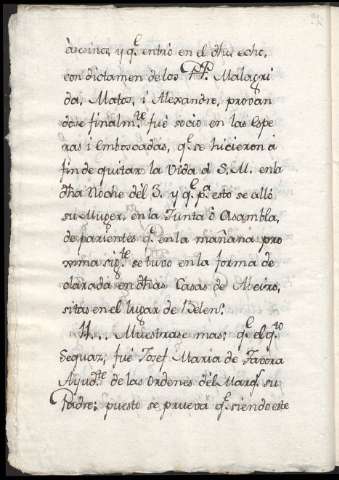 àsesina, y qᵉ entró en el dho echo,
con dictamen de los PP. Malagri
da, Matos, i Alexandre, provan
dose finalmᵗᵉ fué socio en las espe
ras i emboscadas, qᵉ se hicieron à
fin de quitar la Vida à S. M. en la
dha Noche del 3. y qᵉ pᵃ esto se alló
su Muger, en la Junta ò Asambla,
de parientes qᵉ en la mañana pro
xima sigᵗᵉ se tuvo en la forma de
clarada en dhas Casas de Abeiro,
sitas en el lugar de Belen.
11... Muestrase mas; qᵉ el qᵗᵒ
Sequaz, fué Josef Maria de Tavora
Ayudᵗᵉ de las ordenes del Marqˢ su
Padre; puesto se prueva qᵉ siendo este